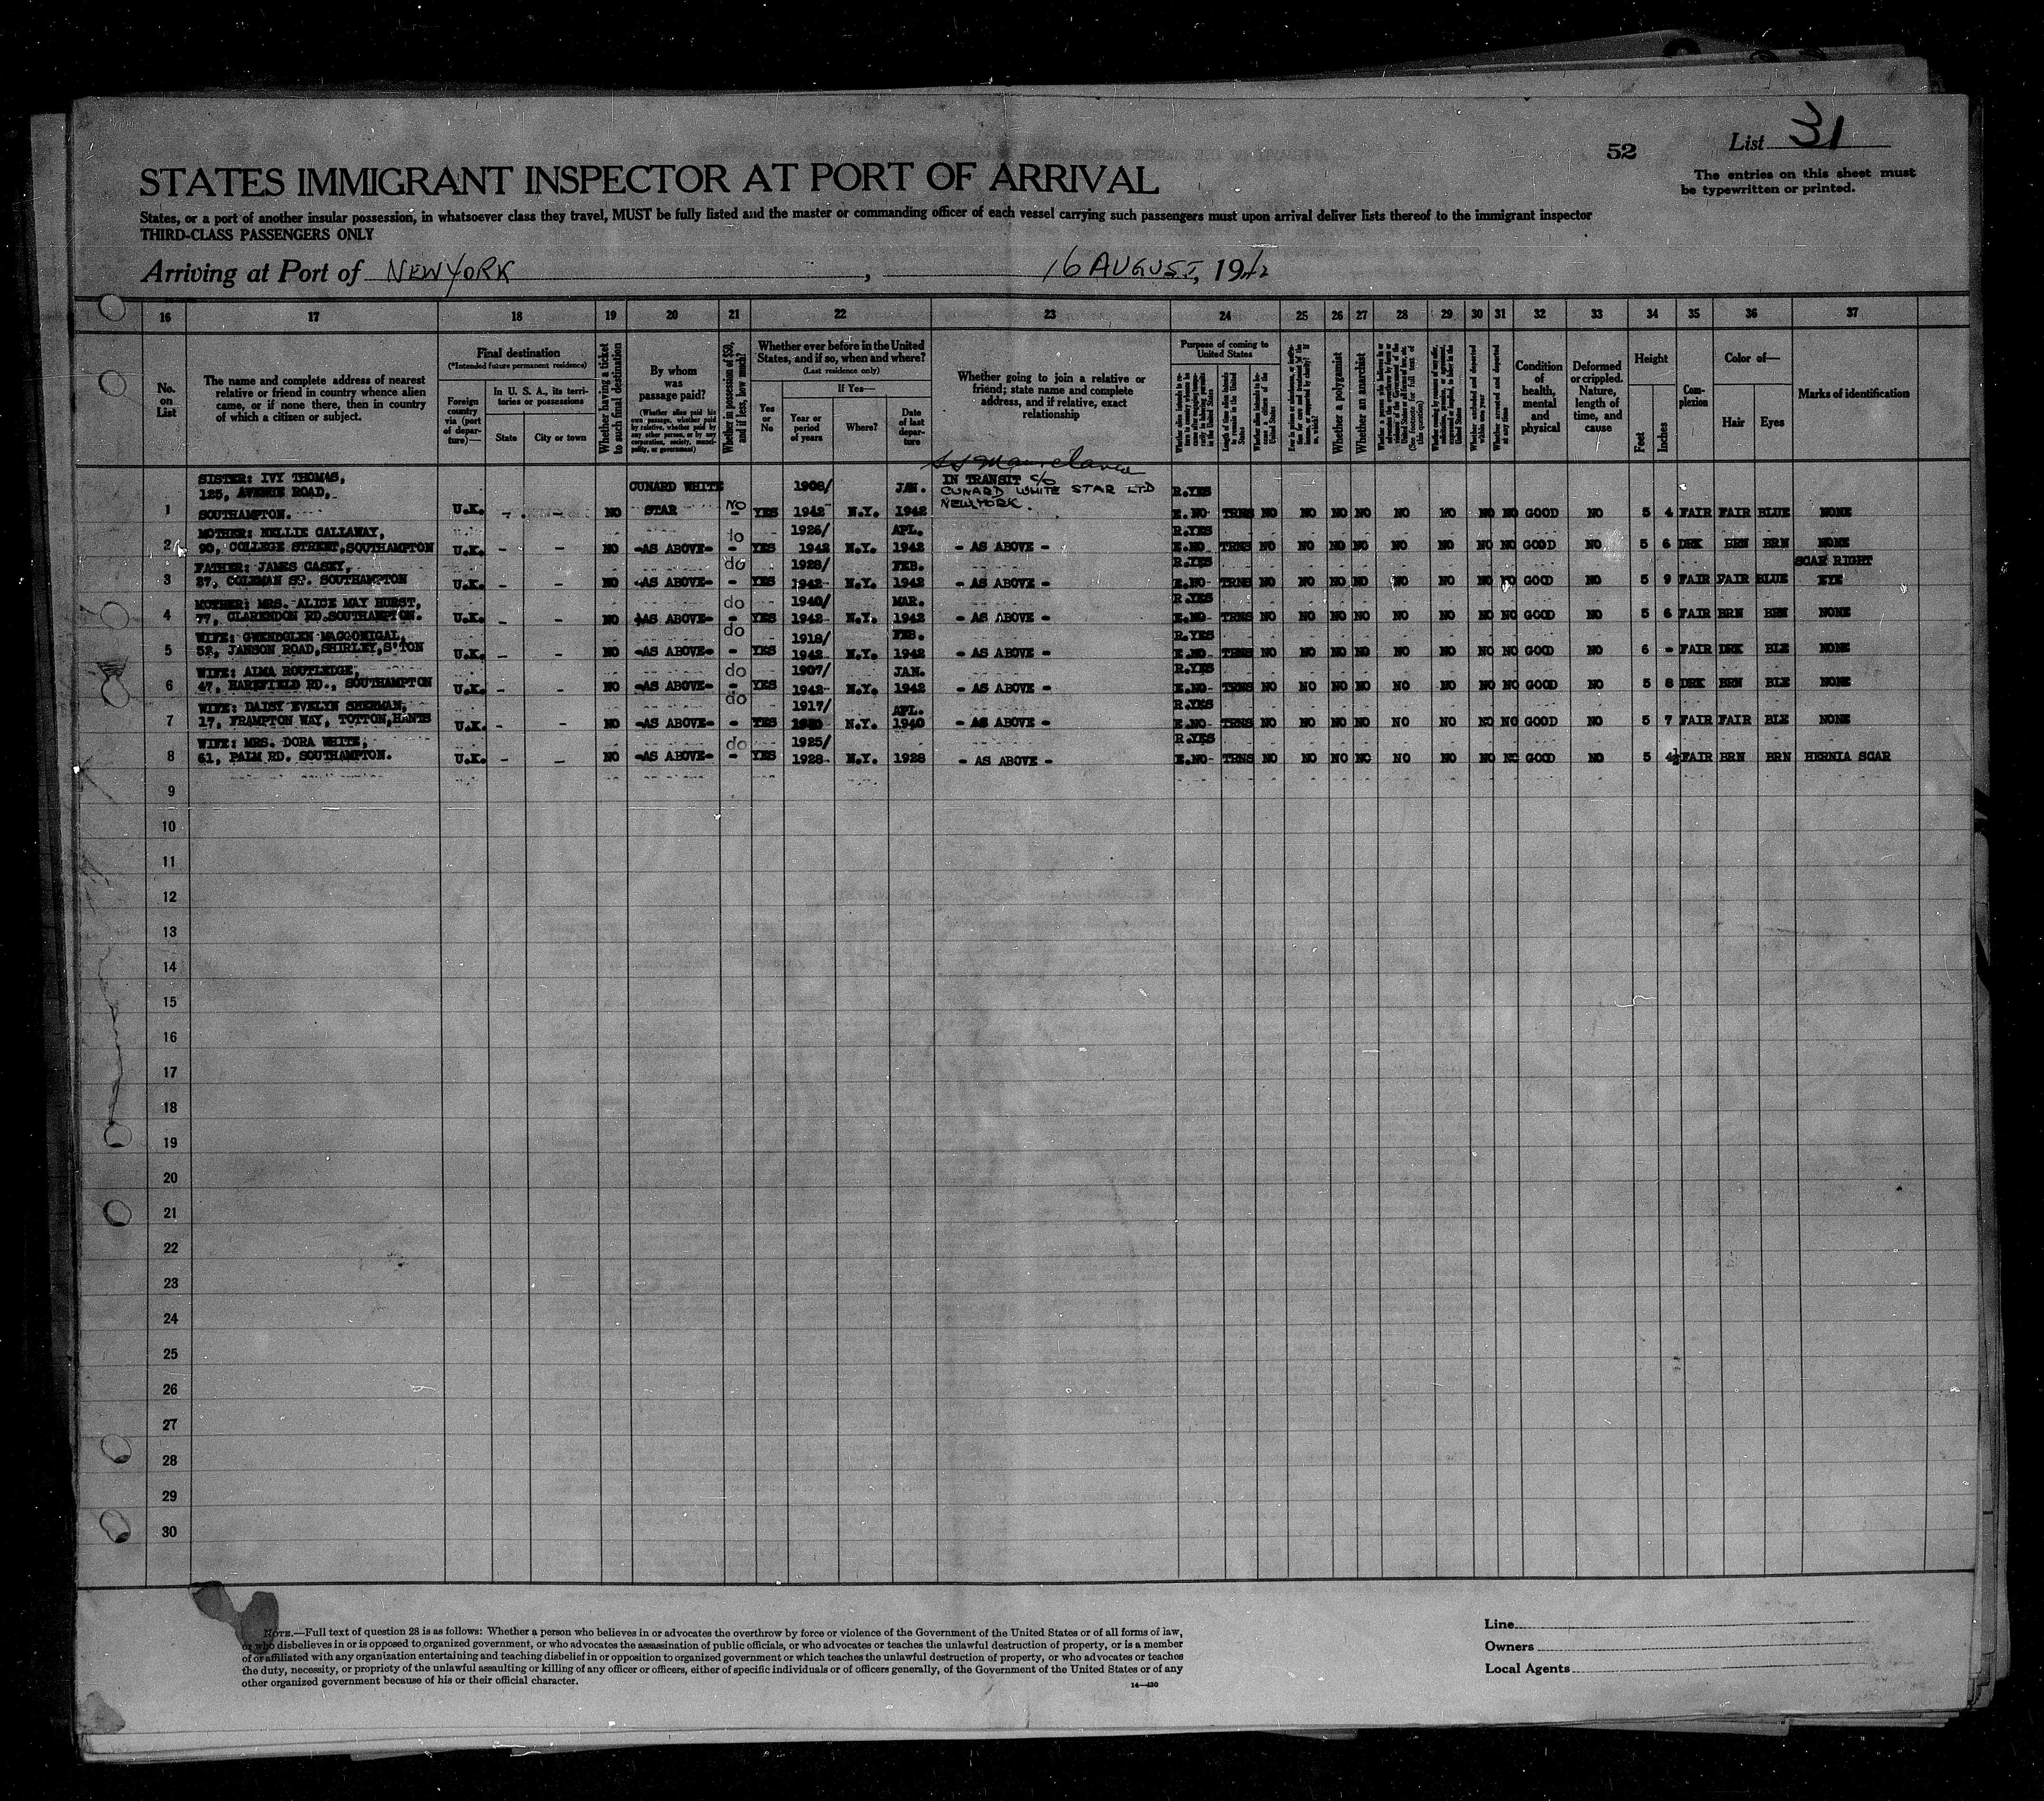 52
List 31
The entries on this sheet must
be typewritten or printed.
STATES IMMIGRANT INSPECTOR AT PORT OF ARRIVAL
States, or a port of another insular possession, in whatsoever class they travel, MUST be fully listed and the master or commanding officer of each vessel carrying such passengers must upon arrival deliver lists thereof to the immigrant inspector
THIRD-CLASS PASSENGERS ONLY
Arriving at Port of NEW YORK, 16 AUGUST, 1942
16 17 18 19 20 21 22 23 24 25 26 27 28 29 30 31 32 33 34 35 36 37
No. on List
The name and complete address of nearest
relative or friend in country whence alien
came, or if none there, then in country
of which a citizen or subject.
Final destination
(*Intended future permanent residence)
Foreign country via (port of departure)—
In U. S. A., its territories or possessions
State
City or town
Whether having a ticket to such final destination
By whom was passage paid?
(Whether alien paid his own passage, whether paid by relative, whether paid by any other person, or by any corporation, society, municipality, or government)
Whether in possession of $50, and if less, how much?
Whether ever before in the United
States, and if so, when and where?
(Last residence only)
Yes or No
If Yes—
Year or period of years
Where?
Date of last departure
Whether going to join a relative or
friend; state name and complete
address, and if relative, exact
relationship
Purpose of coming to United States
Length of time alien intends to remain in the United States
Whether a polygamist
Whether an anarchist
Whether arrested and deported at any time
Condition of health, mental and physical
Deformed or crippled. Nature, length of time, and cause
Height
Feet
Inches
Complexion
Color of—
Hair
Eyes
Marks of identification
SISTER: IVY THOMAS, CUNARD WHITE 1908/ JAN. IN TRANSIT C/O R.YES
125, AVENUE ROAD, CUNARD WHITE STAR LTD
1 SOUTHAMPTON. U.K. - - NO STAR NO YES 1942 N.Y. 1942 NEW YORK. E.NO TRNS NO NO NO NO NO NO NO NO GOOD NO 5 4 FAIR FAIR BLUE NONE
MOTHER: NELLIE CALLAWAY, do 1926/ APL. R.YES
2 90, COLLEGE STREET, SOUTHAMPTON U.K. - - NO -AS ABOVE- - YES 1942 N.Y. 1942 - AS ABOVE - E.NO TRNS NO NO NO NO NO NO NO NO GOOD NO 5 6 DRK BRN BRN NONE
FATHER: JAMES CASEY, do 1928/ FEB. R.YES SCAR RIGHT
3 27, COLEMAN ST. SOUTHAMPTON U.K. - - NO -AS ABOVE- - YES 1942 N.Y. 1942 - AS ABOVE - E.NO TRNS NO NO NO NO NO NO NO NO GOOD NO 5 9 FAIR FAIR BLUE EYE
MOTHER: MRS. ALICE MAY HURST, do 1940/ MAR. R.YES
4 77, CLARENDON RD.SOUTHAMPTON. U.K. - - NO -AS ABOVE- - YES 1942 N.Y. 1942 - AS ABOVE - E.NO TRNS NO NO NO NO NO NO NO NO GOOD NO 5 6 FAIR BRN BRN NONE
WIFE: GWENDOLEN MAGGONIGAL, do 1918/ FEB. R.YES
5 52, JANSON ROAD, SHIRLEY, S'TON U.K. - - NO -AS ABOVE- - YES 1942 N.Y. 1942 - AS ABOVE - E.NO TRNS NO NO NO NO NO NO NO NO GOOD NO 6 - FAIR DRK BLE NONE
WIFE: ALMA ROUTLEDGE, do 1907/ JAN. R.YES
6 47, HAREFIELD RD., SOUTHAMPTON U.K. - - NO -AS ABOVE- - YES 1942 N.Y. 1942 - AS ABOVE - E.NO TRNS NO NO NO NO NO NO NO NO GOOD NO 5 8 DRK BRN BLE NONE
WIFE: DAISY EVELYN SHERMAN, do 1917/ APL. R.YES
7 17, FRAMPTON WAY, TOTTON, HANTS U.K. - - NO -AS ABOVE- - YES N.Y. 1940 - AS ABOVE - E.NO TRNS NO NO NO NO NO NO NO NO GOOD NO 5 7 FAIR FAIR BLE NONE
WIFE: MRS. DORA WHITE, do 1925/ R.YES
8 61, PALM RD. SOUTHAMPTON. U.K. - - NO -AS ABOVE- - YES 1928 N.Y. 1928 - AS ABOVE - E.NO TRNS NO NO NO NO NO NO NO NO GOOD NO 5 4½ FAIR BRN BRN HERNIA SCAR
9
10
11
12
13
14
15
16
17
18
19
20
21
22
23
24
25
26
27
28
29
30
NOTE.—Full text of question 28 is as follows: Whether a person who believes in or advocates the overthrow by force or violence of the Government of the United States or of all forms of law,
or who disbelieves in or is opposed to organized government, or who advocates the assassination of public officials, or who advocates or teaches the unlawful destruction of property, or is a member
of or affiliated with any organization entertaining and teaching disbelief in or opposition to organized government or which teaches the unlawful destruction of property, or who advocates or teaches
the duty, necessity, or propriety of the unlawful assaulting or killing of any officer or officers, either of specific individuals or of officers generally, of the Government of the United States or of any
other organized government because of his or their official character.
14—430
Line
Owners
Local Agents